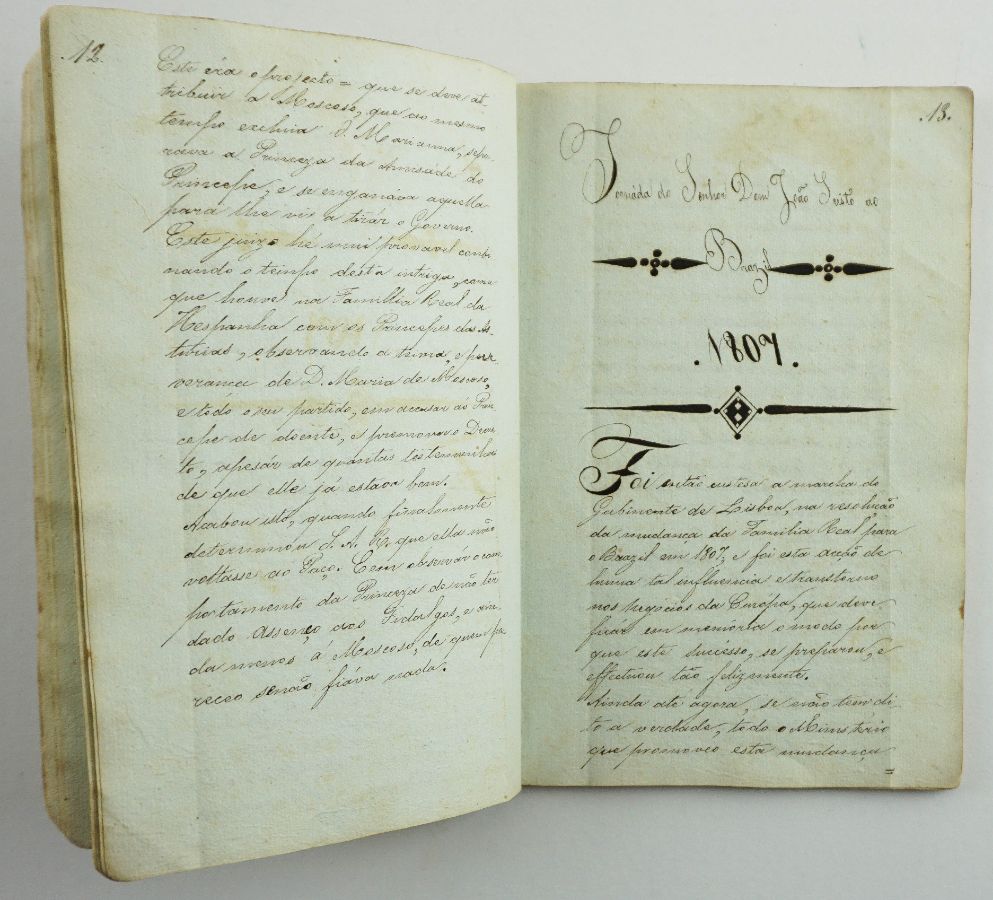 .12.
Este éra o projecto = que se deve at-
tribuir a Moscoso, que ao mesmo
tempo exclúia D. Marianna, sepa-
rava a Princeza da Amisáde do
Principe, e se enganáva aquella
para lhe vir a tirár o Governo.
Este juizo he mui provavel combi-
nando o tempo desta intriga, com a
que houve na Familia Real da
Hespanha com os Principes das As-
turias, observando a teima, e per-
verança de D. Maria de Moscoso,
e todo o seu partido, em accusar ao Prin-
cipe de doente, e promover o
apesár de quantas testemunhas
de que elle já estava bom.
Acabou isto, quando finalmente
determinou S. A. R. que ella não
voltasse ao Paço. Cem observár o com
portamento da Princeza de não ter
dado Assenço aos Fidalgos, e ain-
da menos á Moscoso, de quem pa-
receo senão fiáva nada.
.13.
Jornáda do Senhor Dom João Seisto ao
Brazil
.1807.
Foi então a marcha do
Gabinente de Lisboa, na resolução
da mudança da Familia Real para
o Brazil em 1807, e foi esta acção de
huma tal influencia e transtorno
nos negócios da Európa, que deve
ficár em memoria o modo por
que este successo, se preparou, e
effectuou tão felizmente.
Ainda até agora, se não tem di-
to a verdade, todo o Ministério
que promoveo esta mundança
=